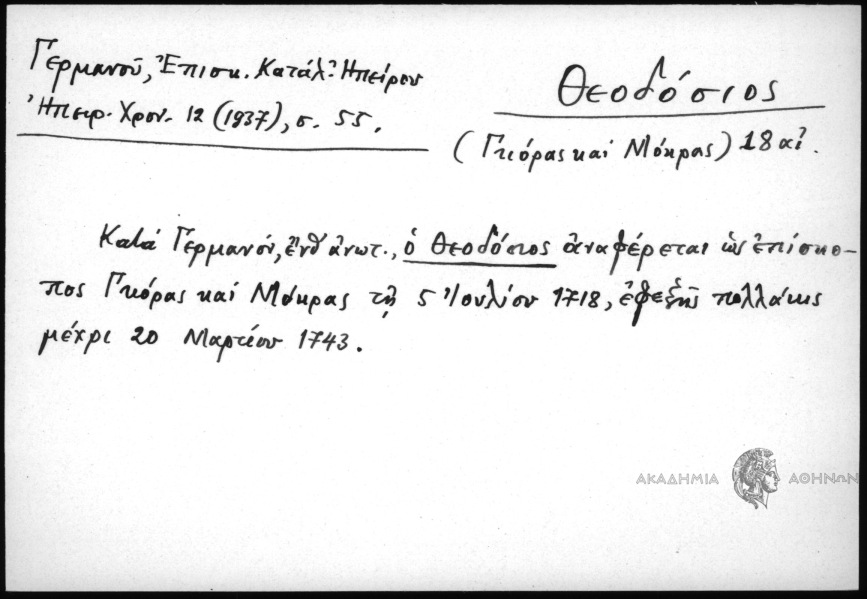 Γερμανοῦ, Ἐπισκ. Κατάλ. Ἠπείρου
Ἠπειρ. Χρον. 12 (1937), σ. 55.
Θεοδόσιος
(Γκόρας καὶ Μόκρας) 18 αἰ.
Κατά Γερμανόν, ἔνθ ἀνωτ., ὁ Θεοδόσιος ἀναφέρεται ὡς ἐπίσκο-
πος Γκόρας καί Μόκρας τῇ 5 Ἰουλίου 1718, ἐφεξῆς πολλάκις
μέχρι 20 Μαρτίου 1743.
ΑΚΑΔΗΜΙΑ ΑΘΗΝΩΝ